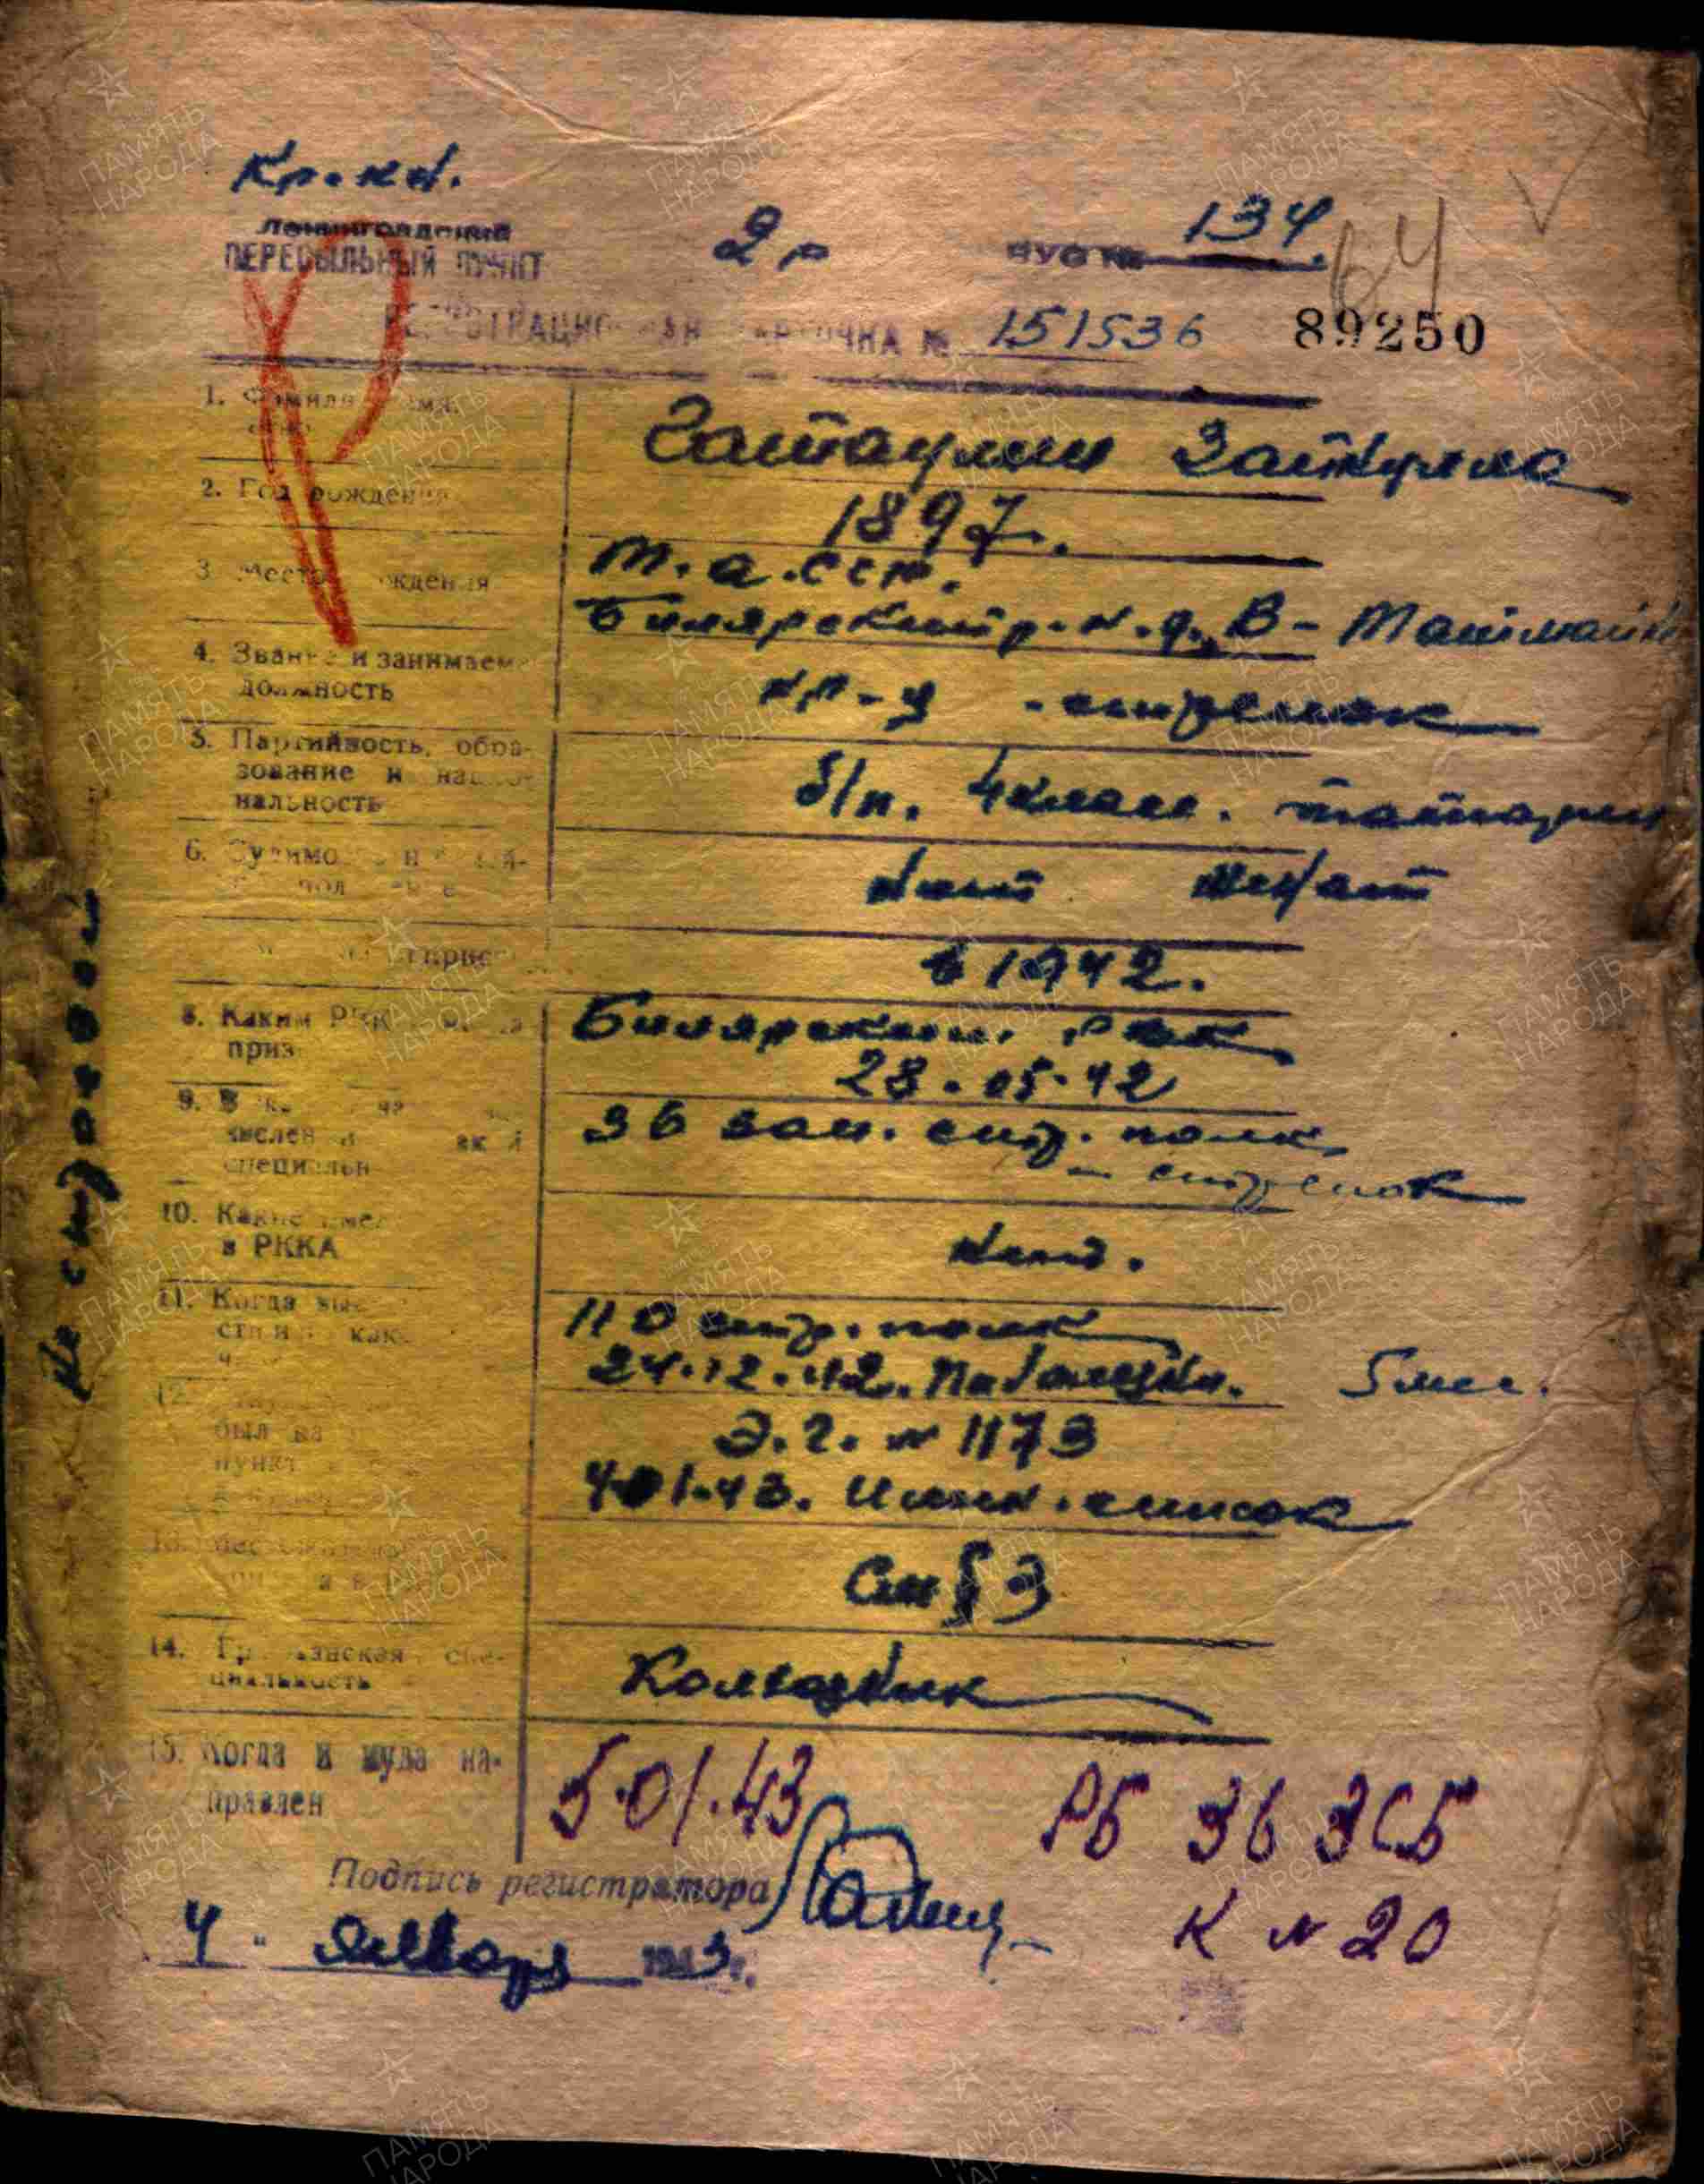 Кр.кн.
ЛЕНИНГРАДСКИЙ
ПЕРЕСЫЛЬНЫЙ ПУНКТ
2 р
134
64
РЕГИСТРАЦИОННАЯ КАРТОЧКА № 151536
89250
1. Фамилия, имя,
Гатауллин
2. Год рождения
1897.
3. Место рождения
Т.А.ССР.
Билярский р-н. д. В-
4. Звание и занимаем
должность
кр-ц - стрелок
5. Партийность, обра-
зование и нацио-
нальность
б/п. 4 класс. татарин
6.
Нет женат
в 1942.
8. Каким РВК
приз
Билярским РВК
28.05.42
9. В
числен
специальн
36 зап. стр. полк
- стрелок
10. Какие имел
в РККА
Нет.
11. Когда
110 стр. полк
24.12.42. По болезни. 5 мес.
12.
был на
пункт
Э.Г. № 1173
4.01.43. Имен. список
13.
См § 3
14. Гражданская спе-
циальность
Колхозник
15. Когда и куда на-
правлен
5.01.43 РБ 36 ЗСБ
Подпись регистратора
К № 20
4 " января 1943 г.
Не строевой
ПАМЯТЬ
НАРОДА